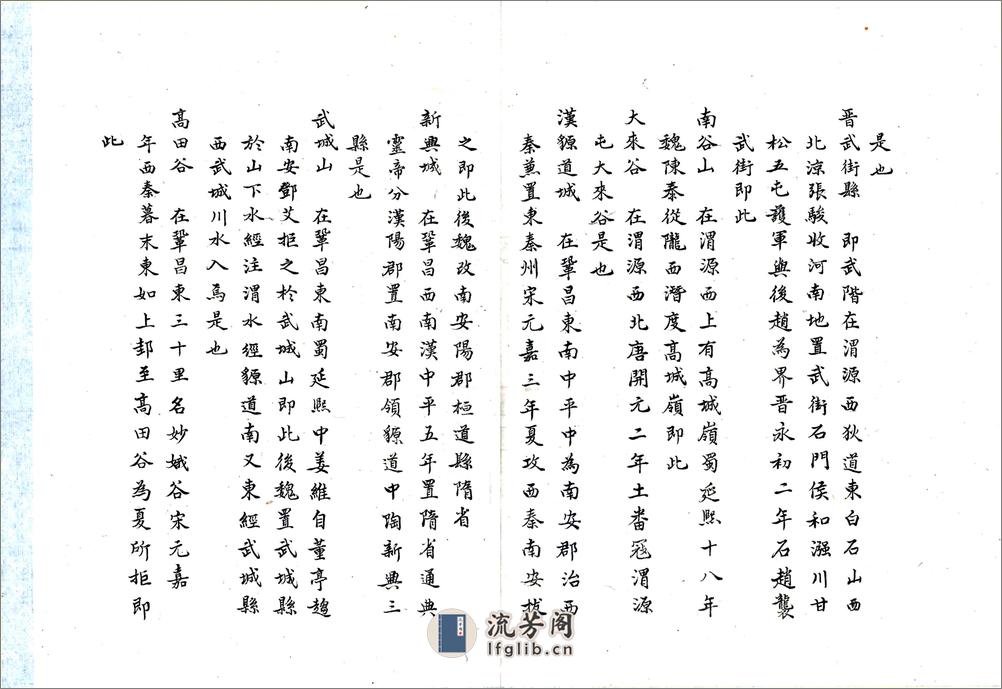 是也
晋武街縣　即武階在渭源西狄道東白石山西
北涼張駿收河南地置武街石門侯和漒川甘
松五屯護軍與後趙為界晋永初二年石趙襲
武街即此
南谷山　在渭源西上有高城嶺蜀延熙十八年
魏陳泰從隴西潛度高城嶺即此
大來谷　在渭源西北唐開元二年土番寇渭源
屯大來谷是也
漢豲道城　在鞏昌東南中平中為南安郡治西
秦兼置東秦州宋元嘉三年夏攻西秦南安拔
之即此後魏改南安陽郡桓道縣隋省
新興城　在鞏昌西南漢中平五年置隋省通典
靈帝分漢陽郡置南安郡領豲道中陶新興三
縣是也
武城山　在鞏昌東南蜀延熙中姜維自董亭趨
南安鄧艾拒之於武城山即此後魏置武城縣
於山下水經注渭水經豲道南又東經武城縣
西武城川水入焉是也
高田谷　在鞏昌東三十里名妙娥谷宋元嘉
年西秦暮末東如上邽至高田谷為夏所拒即
此
流芳阁
lfglib.cn